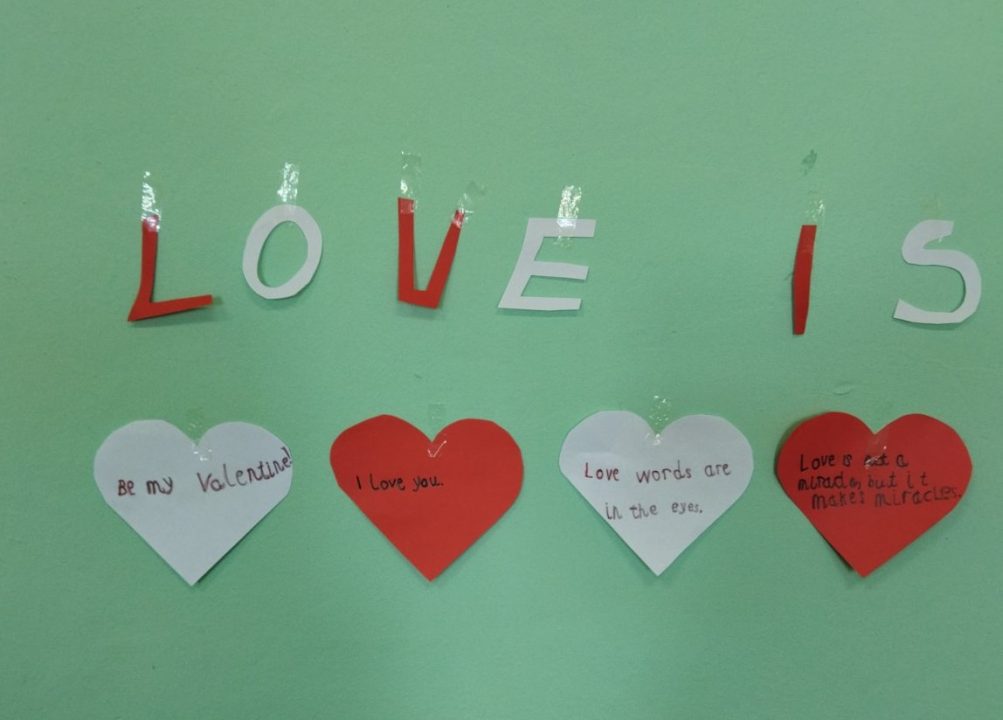 LOVE IS
Be my Valentine!
I Love you.
Love words are
in the eyes.
Love is not a
miracle, but it
makes miracles.